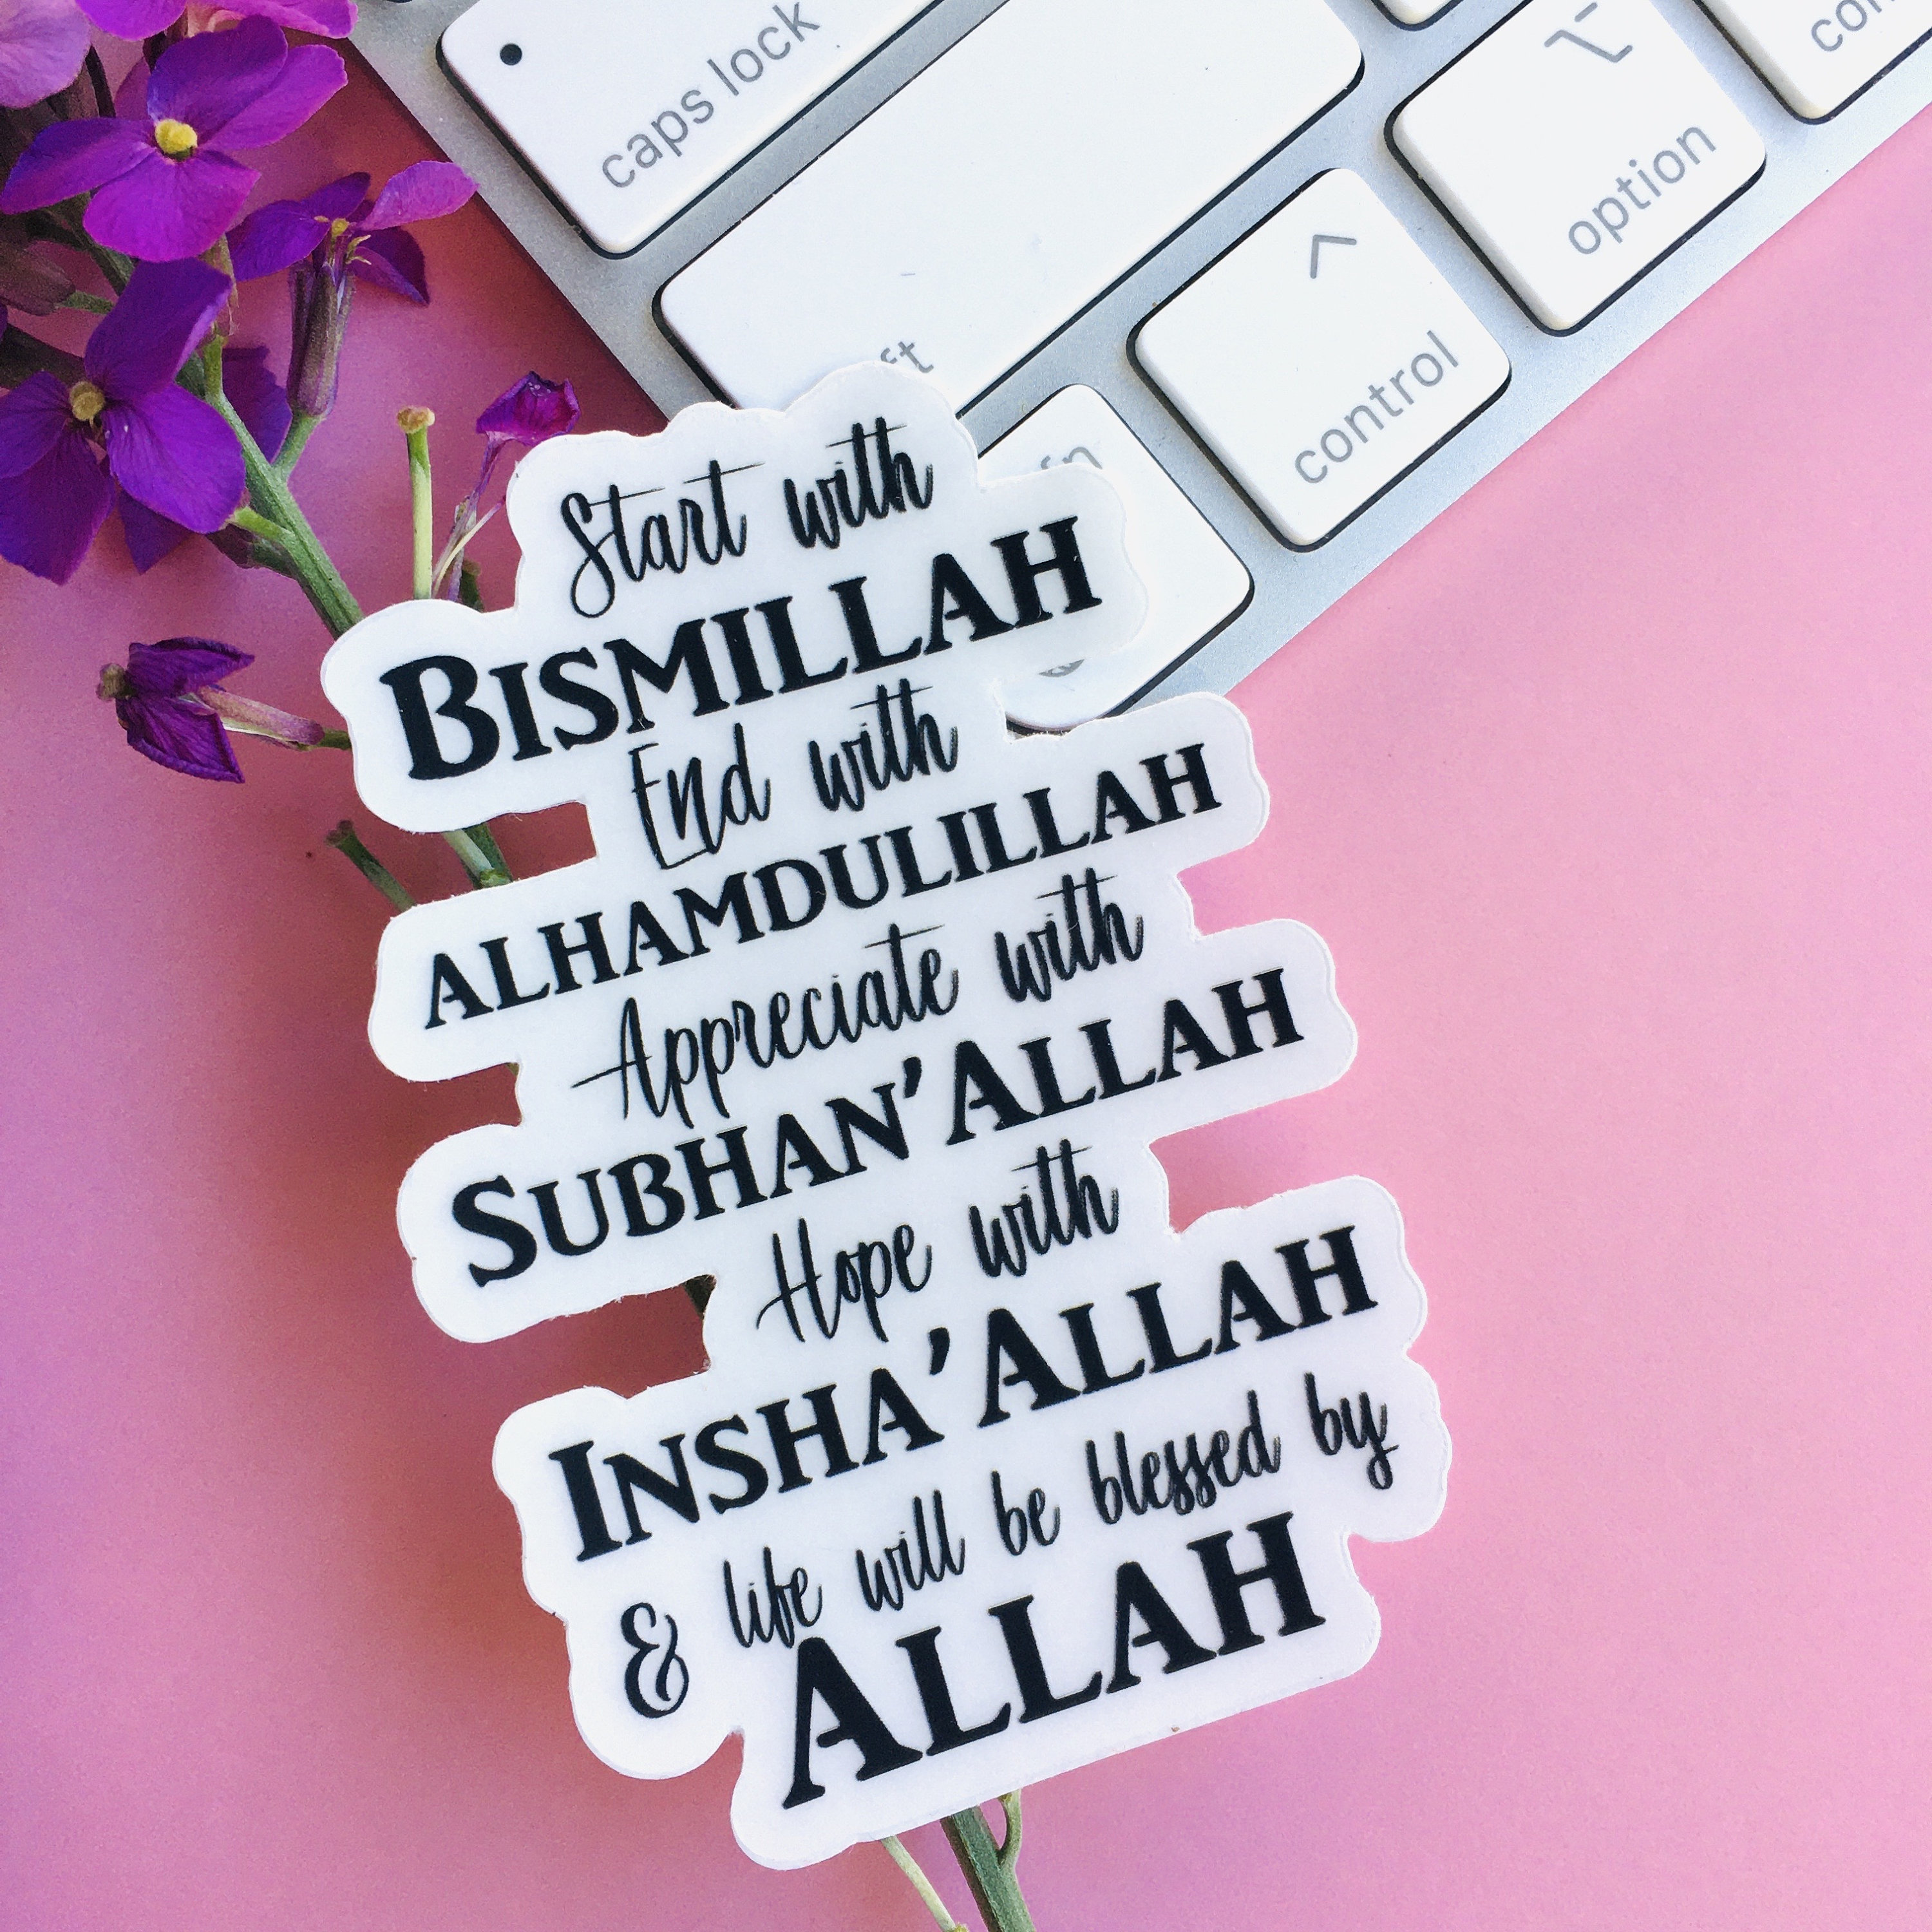 caps lock
option
control
fn
Start with
BISMILLAH
End with
ALHAMDULILLAH
Appreciate with
SUBHAN'ALLAH
Hope with
INSHA'ALLAH
& life will be blessed by
ALLAH